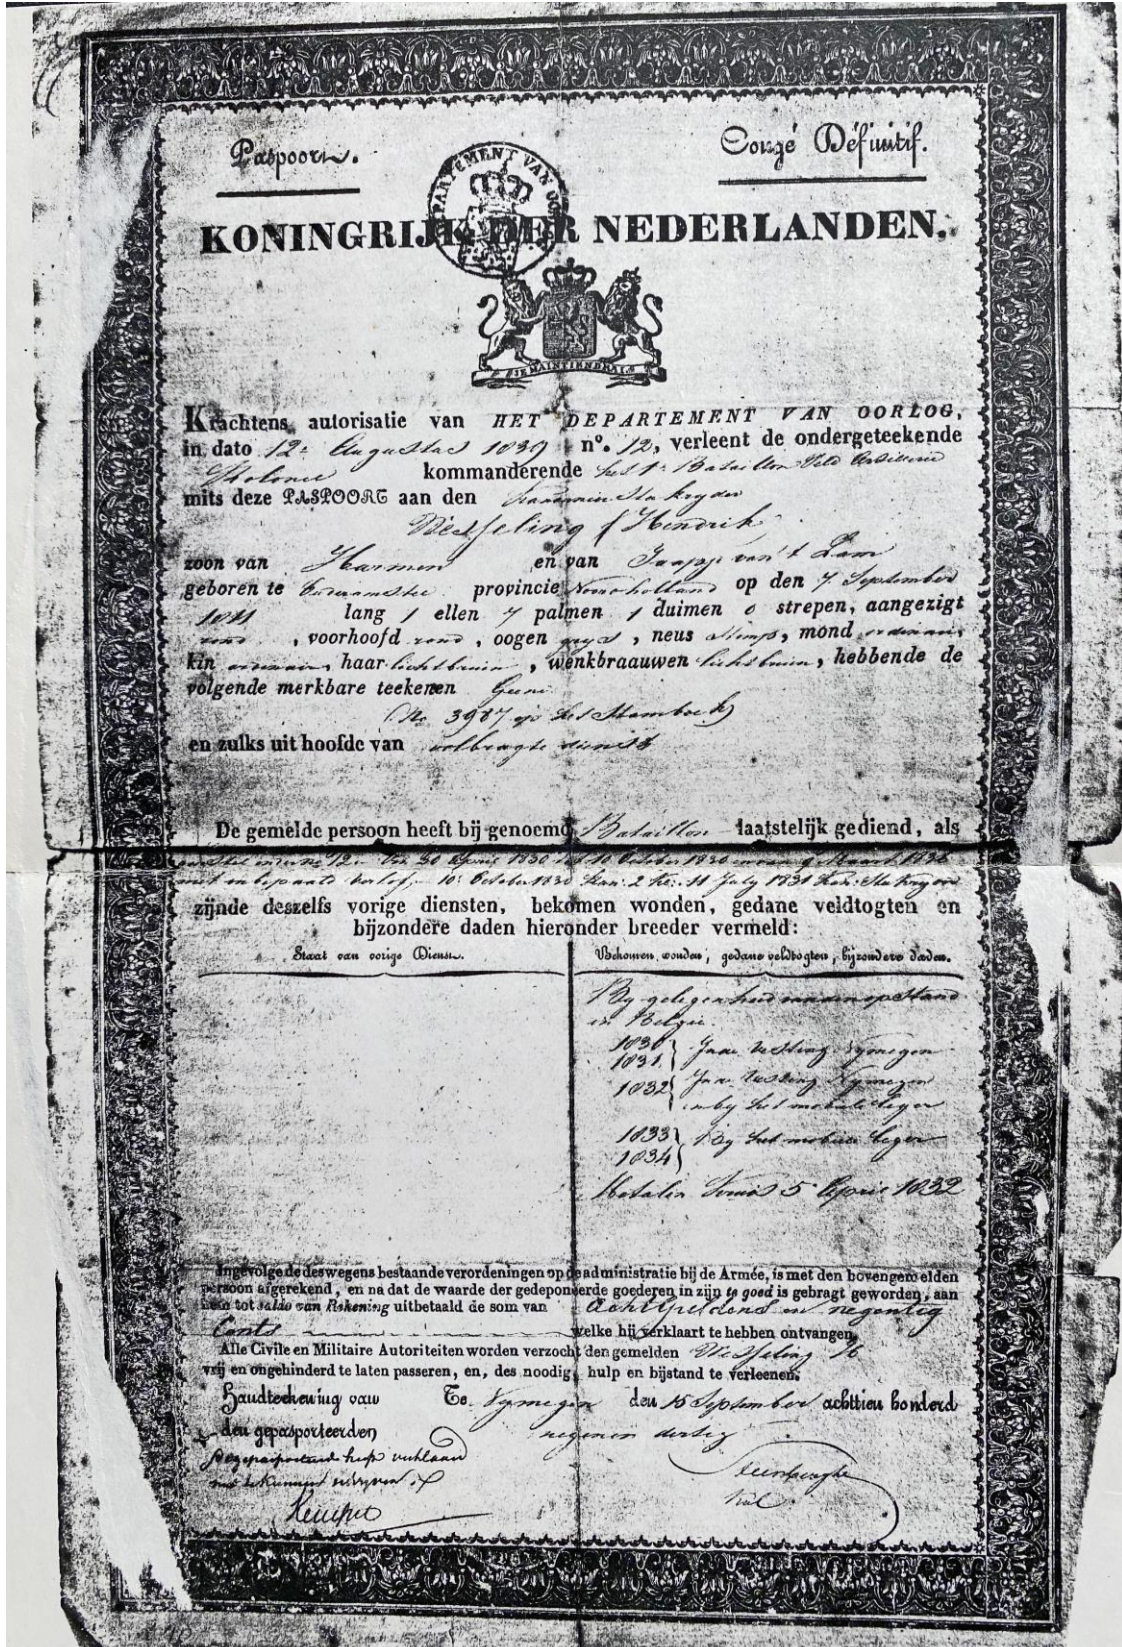 Paspoort.
Congé Définitif.
DEPARTEMENT VAN OOR
KONINGRIJK DER NEDERLANDEN.
JE MAINTIENDRAI
Krachtens autorisatie van HET DEPARTEMENT VAN OORLOG,
in dato 12 Augustus 1839 no. 12, verleent de ondergeteekende
Kolonel kommanderende het 1e Bataillon Veld Artillerie
mits deze PASPOORT aan den
Wesseling Hendrik
zoon van Harmen en van van't Lam
geboren te provincie Noordholland op den 7 September
1811 lang 1 ellen 7 palmen 1 duimen 0 strepen, aangezigt
rond, voorhoofd rond, oogen grys, neus stomp, mond ordinair,
kin ordinair, haar lichtbruin, wenkbraauwen lichtbruin, hebbende de
volgende merkbare teekenen Geene
(No 3987 op het Stamboek)
en zulks uit hoofde van volbragte dienst
De gemelde persoon heeft bij genoemd Bataillon laatstelijk gediend, als
30 April 1830 10 October 1830 9 Maart
met onbepaald verlof 10 October 1830 Kan: 2 Kl: 11 July 1831 Kan:
zijnde deszelfs vorige diensten, bekomen wonden, gedane veldtogten en
bijzondere daden hieronder breeder vermeld:
Staat van vorige Dienst.
Bekomen wonden, gedane veldtogten, bijzondere daden.
By gelegenheid van den opstand
in Belgie.
1830
1831 } In de vesting Nymegen
1832 { In de vesting Nymegen
en by het mobiele leger
1833
1834 } By het mobiele leger
Metalen Kruis 5 April 1832
Ingevolge de deswegens bestaande verordeningen op de administratie bij de Armée, is met den bovengemelden
persoon afgerekend, en na dat de waarde der gedeponeerde goederen in zijn te goed is gebragt geworden, aan
hem tot saldo van Rekening uitbetaald de som van Acht guldens en negentig
Cents welke hij verklaart te hebben ontvangen.
Alle Civile en Militaire Autoriteiten worden verzocht den gemelden Wesseling H
vrij en ongehinderd te laten passeren, en, des noodig, hulp en bijstand te verleenen.
Handteekening van Te Nymegen den 15 September achttien honderd
den gepasporteerden negen en dertig
De gepasporteerde heeft verklaard
niet te kunnen schryven